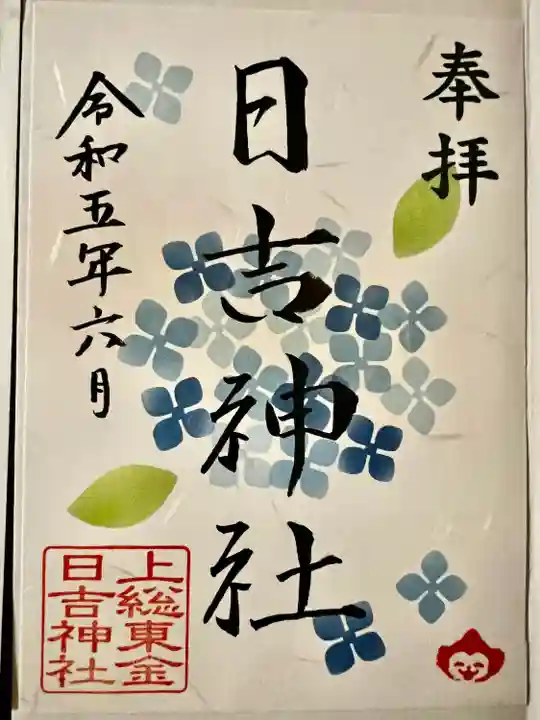 奉拝
日吉神社
令和五年六月
上総東金
日吉神社